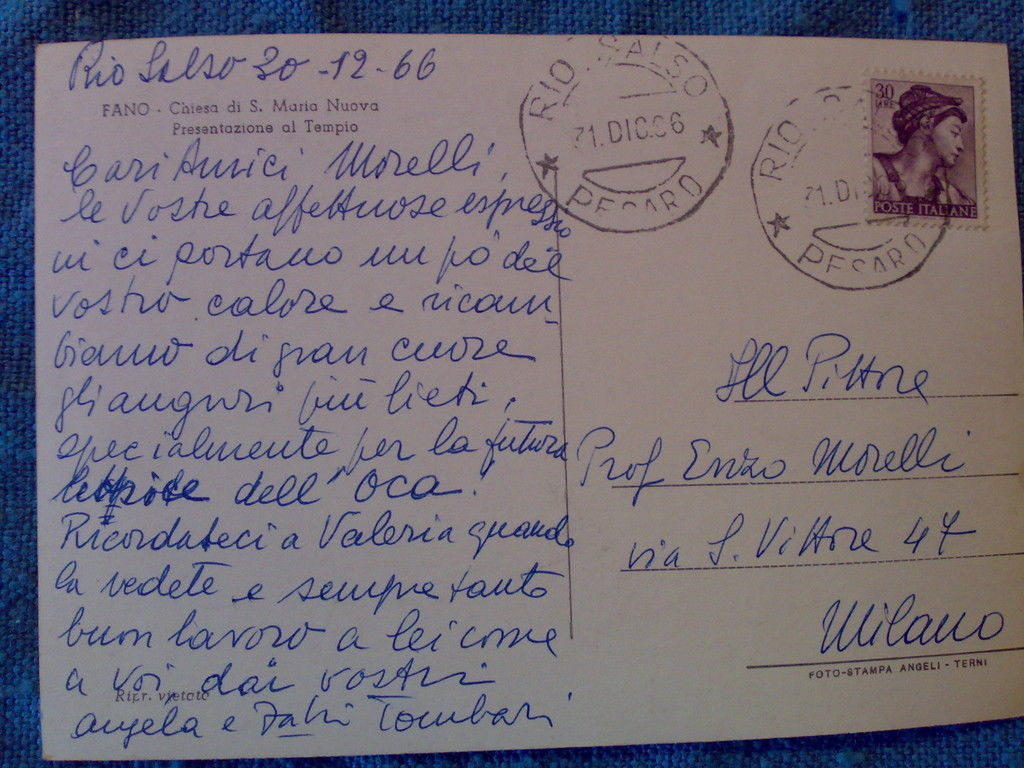 Rio Salso 30-12-66
FANO - Chiesa di S. Maria Nuova
Presentazione al Tempio
Cari Amici Morelli,
le vostre affettuose espressio
ni ci portano un pò del
vostro calore e ricam-
biamo di gran cuore
gli auguri più lieti,
specialmente per la futura
dell'Oca.
Ricordateci a Valeria quando
la vedete e sempre tanto
buon lavoro a lei come
a voi dai vostri
Ripr. vietata
Angela e Fabi Tombari
RIO SALSO
31.DIC.66
PESARO
RIO
31.DI
PESARO
30
LIRE
POSTE ITALIANE
Ill Pittore
Prof Enzo Morelli
via S. Vittore 47
Milano
FOTO-STAMPA ANGELI - TERNI